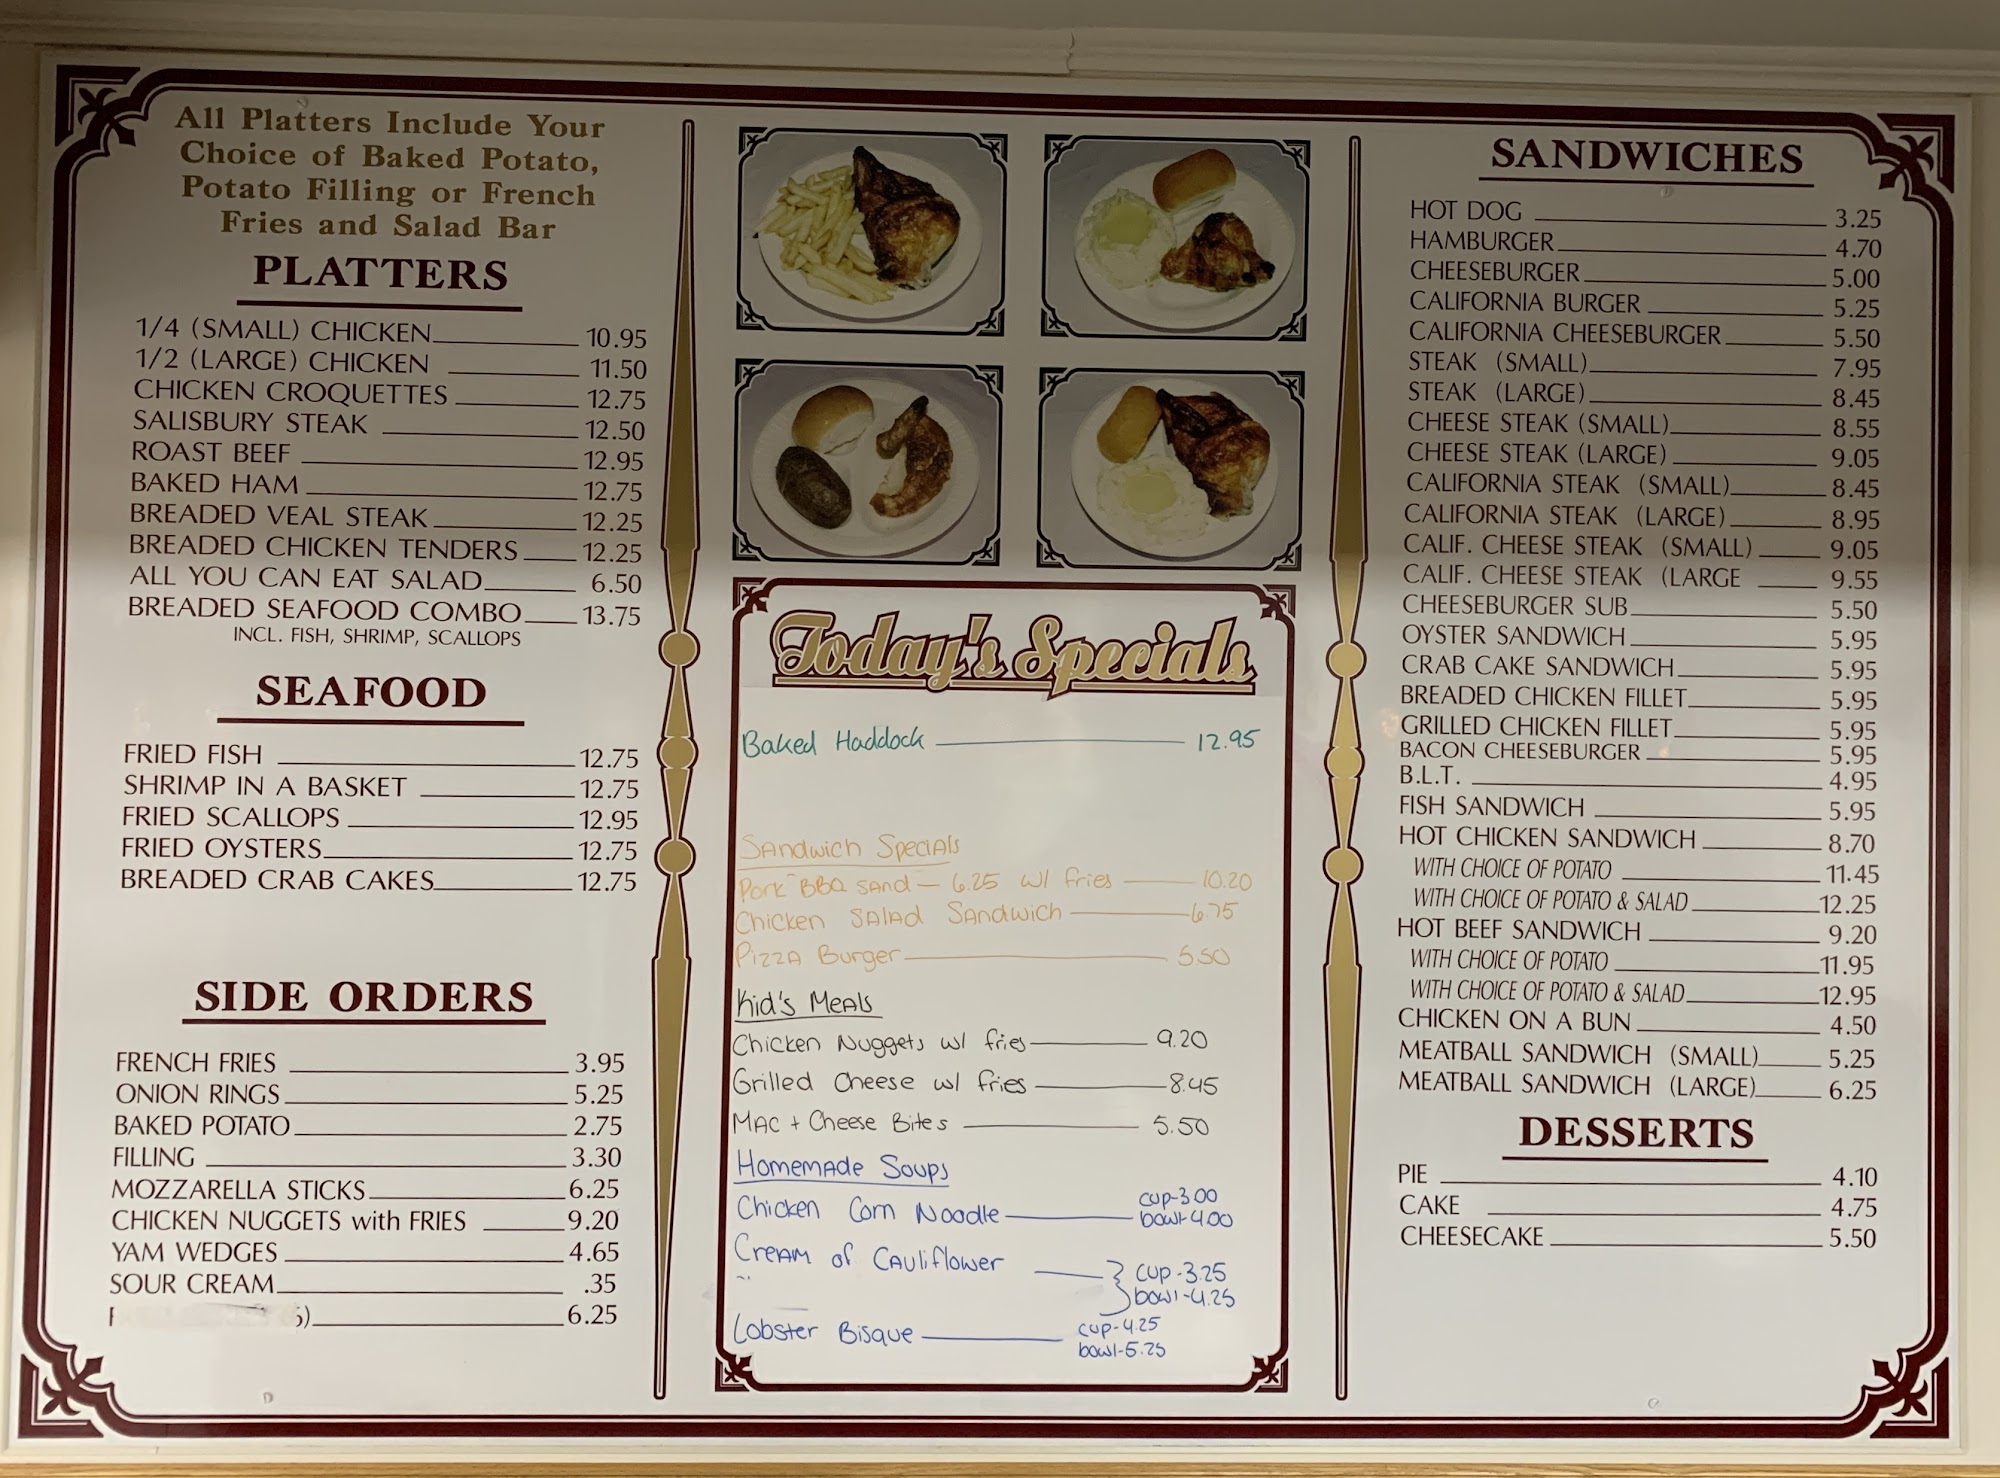 All Platters Include Your
Choice of Baked Potato,
Potato Filling or French
Fries and Salad Bar
PLATTERS
1/4 (SMALL) CHICKEN 10.95
1/2 (LARGE) CHICKEN 11.50
CHICKEN CROQUETTES 12.75
SALISBURY STEAK 12.50
ROAST BEEF 12.95
BAKED HAM 12.75
BREADED VEAL STEAK 12.25
BREADED CHICKEN TENDERS 12.25
ALL YOU CAN EAT SALAD 6.50
BREADED SEAFOOD COMBO 13.75
INCL. FISH, SHRIMP, SCALLOPS
SEAFOOD
FRIED FISH 12.75
SHRIMP IN A BASKET 12.75
FRIED SCALLOPS 12.95
FRIED OYSTERS 12.75
BREADED CRAB CAKES 12.75
SIDE ORDERS
FRENCH FRIES 3.95
ONION RINGS 5.25
BAKED POTATO 2.75
FILLING 3.30
MOZZARELLA STICKS 6.25
CHICKEN NUGGETS with FRIES 9.20
YAM WEDGES 4.65
SOUR CREAM .35
6.25
Today's Specials
Baked Haddock 12.95
Sandwich Specials
Pork BBQ Sand - 6.25 w/ fries 10.20
Chicken Salad Sandwich 6.75
Pizza Burger 5.50
Kid's Meals
Chicken Nuggets w/ fries 9.20
Grilled Cheese w/ fries 8.45
Mac + Cheese Bites 5.50
Homemade Soups
Chicken Corn Noodle cup-3.00
bowl-4.00
Cream of Cauliflower cup-3.25
bowl-4.25
Lobster Bisque cup-4.25
bowl-5.25
SANDWICHES
HOT DOG 3.25
HAMBURGER 4.70
CHEESEBURGER 5.00
CALIFORNIA BURGER 5.25
CALIFORNIA CHEESEBURGER 5.50
STEAK (SMALL) 7.95
STEAK (LARGE) 8.45
CHEESE STEAK (SMALL) 8.55
CHEESE STEAK (LARGE) 9.05
CALIFORNIA STEAK (SMALL) 8.45
CALIFORNIA STEAK (LARGE) 8.95
CALIF. CHEESE STEAK (SMALL) 9.05
CALIF. CHEESE STEAK (LARGE 9.55
CHEESEBURGER SUB 5.50
OYSTER SANDWICH 5.95
CRAB CAKE SANDWICH 5.95
BREADED CHICKEN FILLET 5.95
GRILLED CHICKEN FILLET 5.95
BACON CHEESEBURGER 5.95
B.L.T. 4.95
FISH SANDWICH 5.95
HOT CHICKEN SANDWICH 8.70
WITH CHOICE OF POTATO 11.45
WITH CHOICE OF POTATO & SALAD 12.25
HOT BEEF SANDWICH 9.20
WITH CHOICE OF POTATO 11.95
WITH CHOICE OF POTATO & SALAD 12.95
CHICKEN ON A BUN 4.50
MEATBALL SANDWICH (SMALL) 5.25
MEATBALL SANDWICH (LARGE) 6.25
DESSERTS
PIE 4.10
CAKE 4.75
CHEESECAKE 5.50